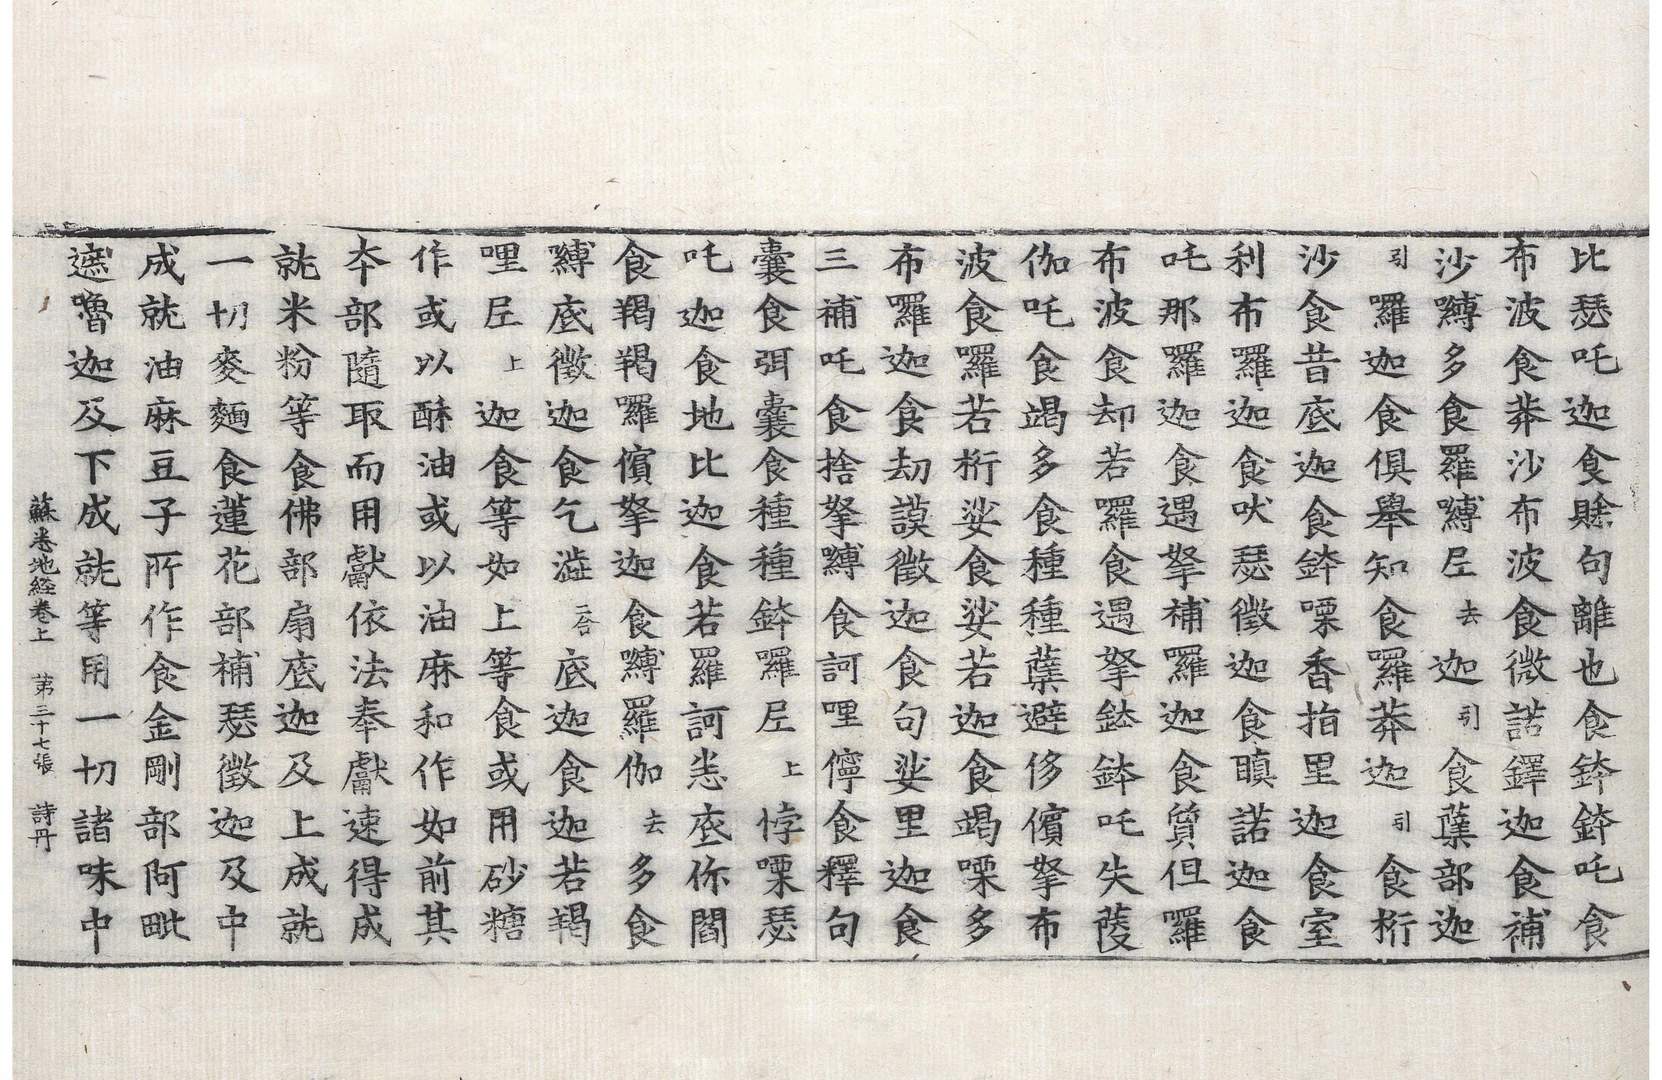 比瑟吒迦食賖句離也食鉢鉢吒食
布波食莽沙布波食微諾鐸迦食補
沙嚩多食羅嚩𡰱去迦引食蘖部迦
引囉迦食俱舉知食羅莽迦引食桁
沙食昔底迦食鉢㗚香指里迦食室
利布羅迦食吠瑟徵迦食瞋諾迦食
吒那囉迦食遇拏補囉迦食質但囉
布波食却若囉食遇拏鉢鉢吒失䕃
伽吒食竭多食種種蘖避侈儐拏布
波食囉若桁娑食娑若迦食竭㗚多
布囉迦食劫謨徵迦食句娑里迦食
三補吒食捨拏嚩食訶哩儜食釋句
囊食弭囊食種種鉢囉𡰱上悖㗚瑟
吒迦食地比迦食若羅訶恙底你閻
食羯羯囉儐拏迦食嚩羅伽去多食
嚩底徵迦食乞澁二合底迦食迦若羯
哩𡰱上迦食等如上等食或用砂糖
作或以酥油或以油麻和作如前其
本部隨取而用獻依法奉獻速得成
就米粉等食佛部扇底迦及上成就
一切麥麵食蓮花部補瑟徵迦及中
成就油麻豆子所作食金剛部阿毗
遮嚕迦及下成就等用一切諸味中
蘇悉地經卷上 第三十七張 詩丹